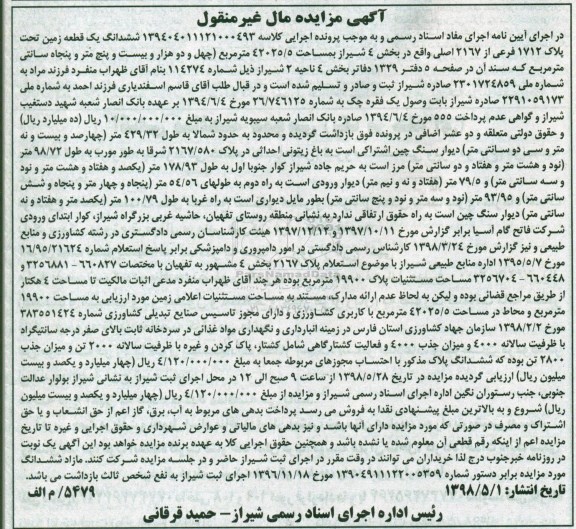 آگهی مزایده مال غیرمنقول
در اجرای آیین نامه اجرای مفاد اسناد رسمی و به موجب پرونده اجرایی کلاسه ۱۳۹۴۰۴۰۱۱۱۲۱۰۰۰۴۹۳ ششدانگ یک قطعه زمین تحت
پلاک ۱۷۱۲ فرعی از ۲۱۶۷ اصلی واقع در بخش ۴ شیراز بمساحت ۴۲۰۳۵/۵ مترمربع (چهل و دو هزار و بیست و پنج متر و پنجاه سانتی
مترمربع که سند آن در صفحه ۵ دفتر ۱۳۲۹ دفاتر بخش ۴ ناحیه ۲ شیراز ذیل شماره ۱۱۴۲۷۴ بنام آقای ظهراب منفرد فرزند مراد به
شماره ملی ۲۳۰۱۷۲۴۸۵۹ صادره شیراز ثبت و صادر و تسلیم شده است و در قبال طلب آقای قاسم اسفندیاری فرزند احمد به شماره ملی
۲۲۹۱۰۵۹۱۷۳ صادره شیراز بابت وصول یک فقره چک به شماره ۲۶/۷۴۶۱۲۵ مورخ ۱۳۹۴/۶/۴ بر عهده بانک انصار شعبه شهید دستغیب
شیراز و گواهی عدم پرداخت ۵۵۵ مورخ ۱۳۹۴/۶/۴ صادره بانک انصار شعبه سیبویه شیراز به مبلغ ۱۰/۰۰۰/۰۰۰/۰۰۰ ریال (ده میلیارد ریال)
و حقوق دولتی متعلقه و دو عشر اضافی در پرونده فوق بازداشت گردیده و محدود به حدود شمالا به طول ۴۲۹/۳۲ متر (چهارصد و بیست و نه
متر و سی دو سانتی متر) دیوار سنگ چین اشتراکی است به باغ زیتونی احداثی در پلاک ۲۱۶۷/۵۸۰ شرقا به طور مورب به طول ۹۸/۷۲ متر
(نود و هشت متر و هفتاد و دو سانتی متر) مرز است به حریم جاده شیراز کوار جنوبا اول به طول ۱۷۸/۹۳ متر (یکصد و هفتاد و هشت متر و نود
و سه سانتی متر) و ۷۹/۵ متر (هفتاد و نه و نیم متر) دیوار ورودی است به راه دوم به طولهای ۵۴/۵۶ متر (پنجاه و چهار متر و پنجاه و شش
سانتی متر) و ۹۳/۹۵ متر (نود و سه متر و نود و پنج سانتی متر) بطور مایل دیواری است به راه غربا به طول ۱۰۰/۷۹ متر (یکصد متر و هفتاد و نه
سانتی متر) دیوار سنگ چین است به راه حقوق ارتفاقی ندارد به نشانی منطقه روستای تفهیان، حاشیه غربی بزرگراه شیراز، کوار ابتدای ورودی
شرکت فاتح گام آسیا برابر گزارش مورخ ۱۳۹۷/۱۰/۱۱ و ۱۳۹۷/۱۲/۱۳ هیئت کارشناسان رسمی دادگستری در رشته کشاورزی و منابع
طبیعی و نیز گزارش مورخ ۱۳۹۸/۳/۲۴ کارشناس رسمی دادگستی در امور دامپروری و دامپزشکی برابر پاسخ استعلام شماره ۱۶/۹۵/۲۱۶۲۴
مورخ ۱۳۹۵/۵/۷ اداره منابع طبیعی شیراز با موضوع استعلام پلاک ۲۱۶۷ بخش ۴ مشهور به تفهیان با مختصات ۶۶۰۸۲۷ - ۳۲۵۶۸۸۱ و
۶۶۰۴۴۸ - ۳۲۵۶۷۰۴ مساحت مستثنیات پلاک ۱۹۹۰۰ مترمربع بوده هر چند آقای ظهراب منفرد مدعی اثبات مالکیت تا مساحت ۴ هکتار
از طریق مراجع قضائی بوده و لیکن به لحاظ عدم ارائه مدارک، مستند به مساحت مستثنیات اعلامی زمین مورد ارزیابی به مساحت ۱۹۹۰۰
مترمربع و محاط در مساحت ۴۲۰۳۵/۵ مترمربع با کاربری کشاورزی و دارای مجوز تاسیس صنایع تبدیلی کشاورزی شماره ۳۸۳۵۵۱۴۲۴
مورخ ۱۳۹۸/۲/۲ سازمان جهاد کشاورزی استان فارس در زمینه انبارداری و نگهداری مواد غذائی در سردخانه ثابت بالای صفر درجه سانتیگراد
با ظرفیت سالانه ۴۰۰۰ و میزان جذب ۴۰۰۰ و فعالیت کشتارگاهی شامل کشتار، پاک کردن و غیره با ظرفیت سالانه ۲۰۰۰ تن و میزان جذب
۲۸۰۰ تن بوده که ششدانگ پلاک مذکور با احتساب مجوزهای مربوطه جمعا به مبلغ ۴/۱۲۰/۰۰۰/۰۰۰ ریال (چهار میلیارد و یکصد و بیست
میلیون ریال) ارزیابی گردیده مزایده در تاریخ ۱۳۹۸/۵/۲۸ از ساعت ۹ صبح الی ۱۲ در محل اجرای ثبت شیراز به نشانی شیراز بولوار عدالت
جنوبی، جنب رستوران نگین اداره اجرای اسناد رسمی شیراز و مزایده از مبلغ ۴/۱۲۰/۰۰۰/۰۰۰ ریال (چهار میلیارد و یکصد و بیست میلیون
ریال) شروع و به بالاترین مبلغ پیشنهادی نقدا به فروش می رسد پرداخت بدهی های مربوط به آب، برق، گاز اعم از حق انشعاب و یا حق
اشتراک و مصرف در صورتی که مورد مزایده دارای آنها باشد و نیز بدهی های مالیاتی و عوارض شهرداری و حقوق اجرایی و غیره تا تاریخ
مزایده اعم از اینکه رقم قطعی آن معلوم شده یا نشده باشد و همچنین حقوق اجرایی کلا به عهده برنده مزایده خواهد بود این آگهی یک نوبت
در روزنامه خبرجنوب درج لذا خریداران می توانند در وقت مقرر در اجرای ثبت شیراز حاضر و در جلسه مزایده شرکت کنند. مازاد ششدانگ
مورد مزایده برابر دستور شماره ۱۳۹۰۴۹۱۱۱۲۲۰۰۵۳۵۹ مورخ ۱۳۹۶/۱۱/۱۸ اجرای ثبت شیراز به نفع شخص ثالث بازداشت می باشد.
تاریخ انتشار: ۱۳۹۸/۵/۱
۵۴۷۹/ م الف
رئیس اداره اجرای اسناد رسمی شیراز – حمید قرقانی